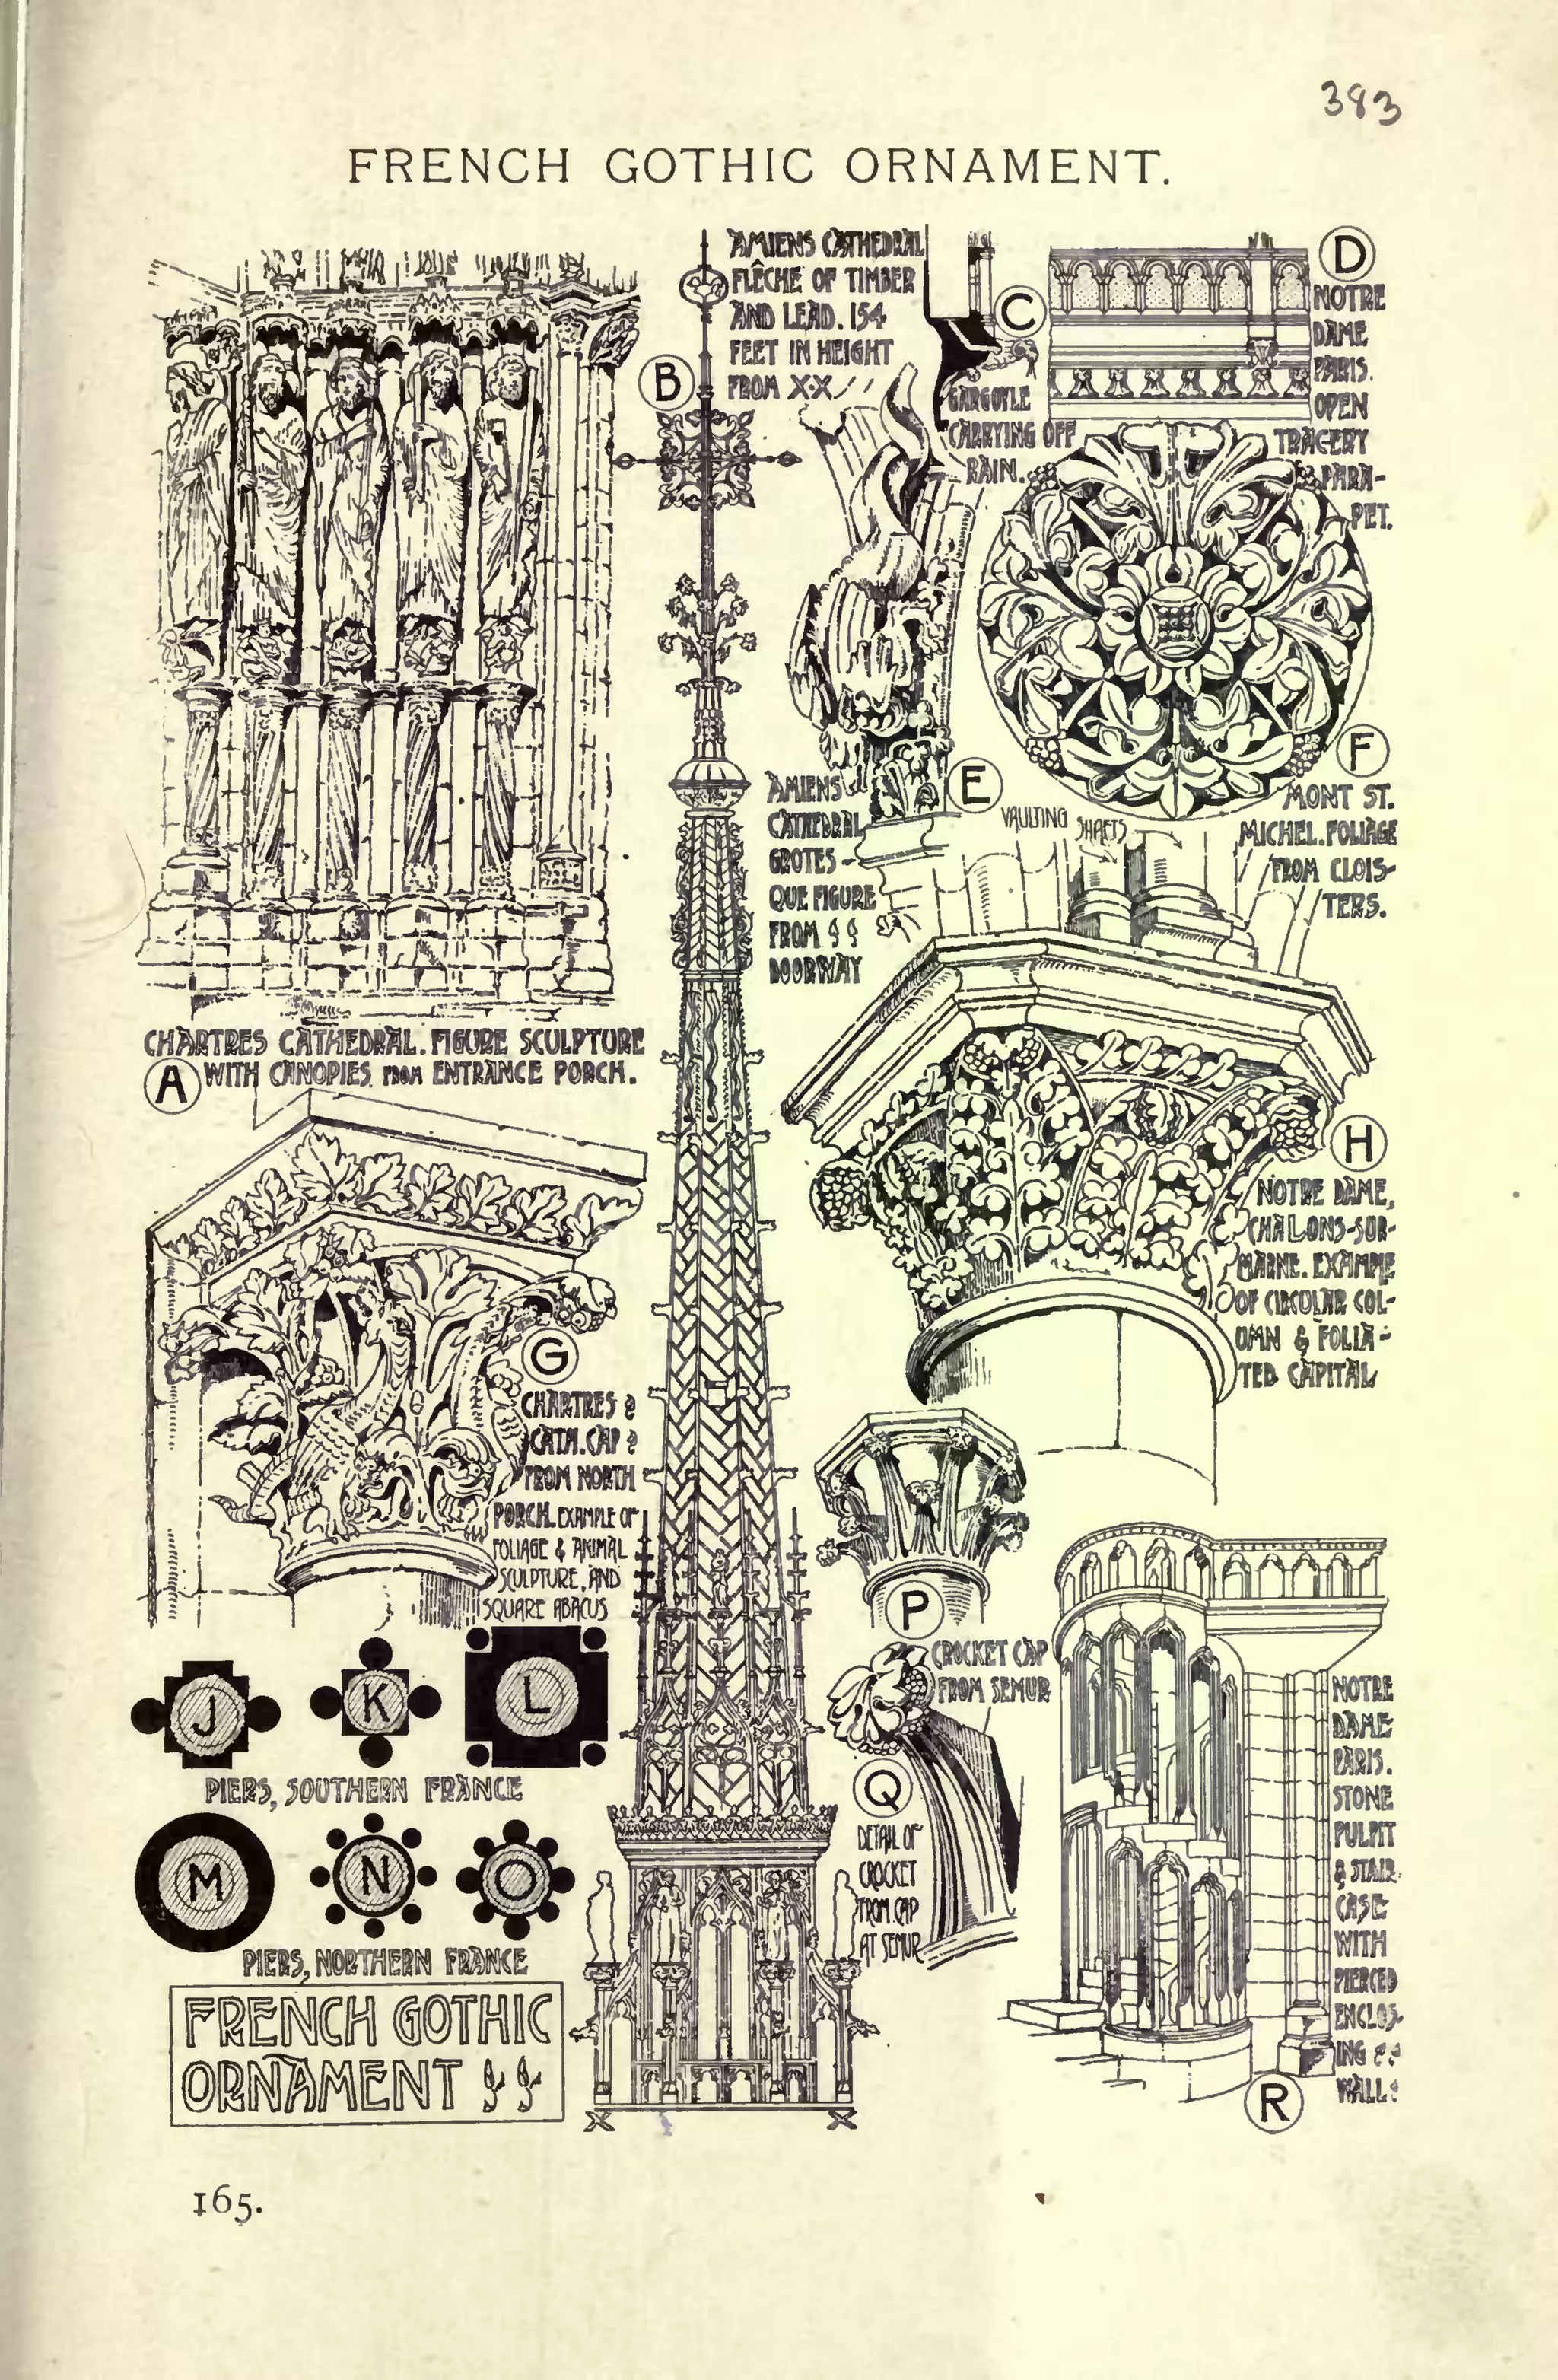 383
FRENCH GOTHIC ORNAMENT.
AMIENS CATHEDRAL
FLÊCHE OF TIMBER
AND LEAD. 154
FEET IN HEIGHT
FROM X-X
B
C
GARGOYLE
CARRYING OFF
RAIN.
D
NOTRE
DAME
PARIS.
OPEN
TRACERY
PARA-
PET.
E
AMIENS
CATHEDRAL
GROTES-
QUE FIGURE
FROM
DOORWAY
F
MONT ST.
MICHEL. FOLIAGE
FROM CLOIS-
TERS.
VAULTING SHAFTS
CHARTRES CATHEDRAL. FIGURE SCULPTURE
A WITH CANOPIES FROM ENTRANCE PORCH.
G
CHARTRES
CATH. CAP
FROM NORTH
PORCH. EXAMPLE OF
FOLIAGE & ANIMAL
SCULPTURE, AND
SQUARE ABACUS
H
NOTRE DAME,
CHALONS-SUR-
MARNE. EXAMPLE
OF CIRCULAR COL-
UMN & FOLIA-
TED CAPITAL
J K L
PIERS, SOUTHERN FRANCE
M N O
PIERS, NORTHERN FRANCE
P
CROCKET CAP
FROM SEMUR
Q
DETAIL OF
CROCKET
FROM CAP
AT SEMUR
NOTRE
DAME
PARIS.
STONE
PULPIT
& STAIR-
CASE
WITH
PIERCED
ENCLOS-
ING
WALL
R
FRENCH GOTHIC
ORNAMENT
X X
165.